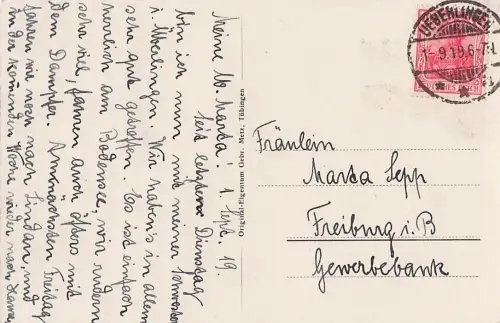 Meine lb. Marta! 1. Sept. 19.
Seit letzten Dienstag
bin ich nun mit meiner Schwester
i. Überlingen. Wir haben's in allem
sehr gut getroffen. Es ist einfach
herrlich am Bodensee, wir rudern
sehr viel, fahren auch öfters mit
dem Dampfer. Am nächsten Freitag
fahren wir noch nach Lindau, und
in der kommenden Woche wieder nach Hause
Original-Eigentum Gebr. Metz, Tübingen
UEBERLINGEN
1-9.19.6-7N.
Fräulein
Marta Sepp
Freiburg i. B
Gewerbebank